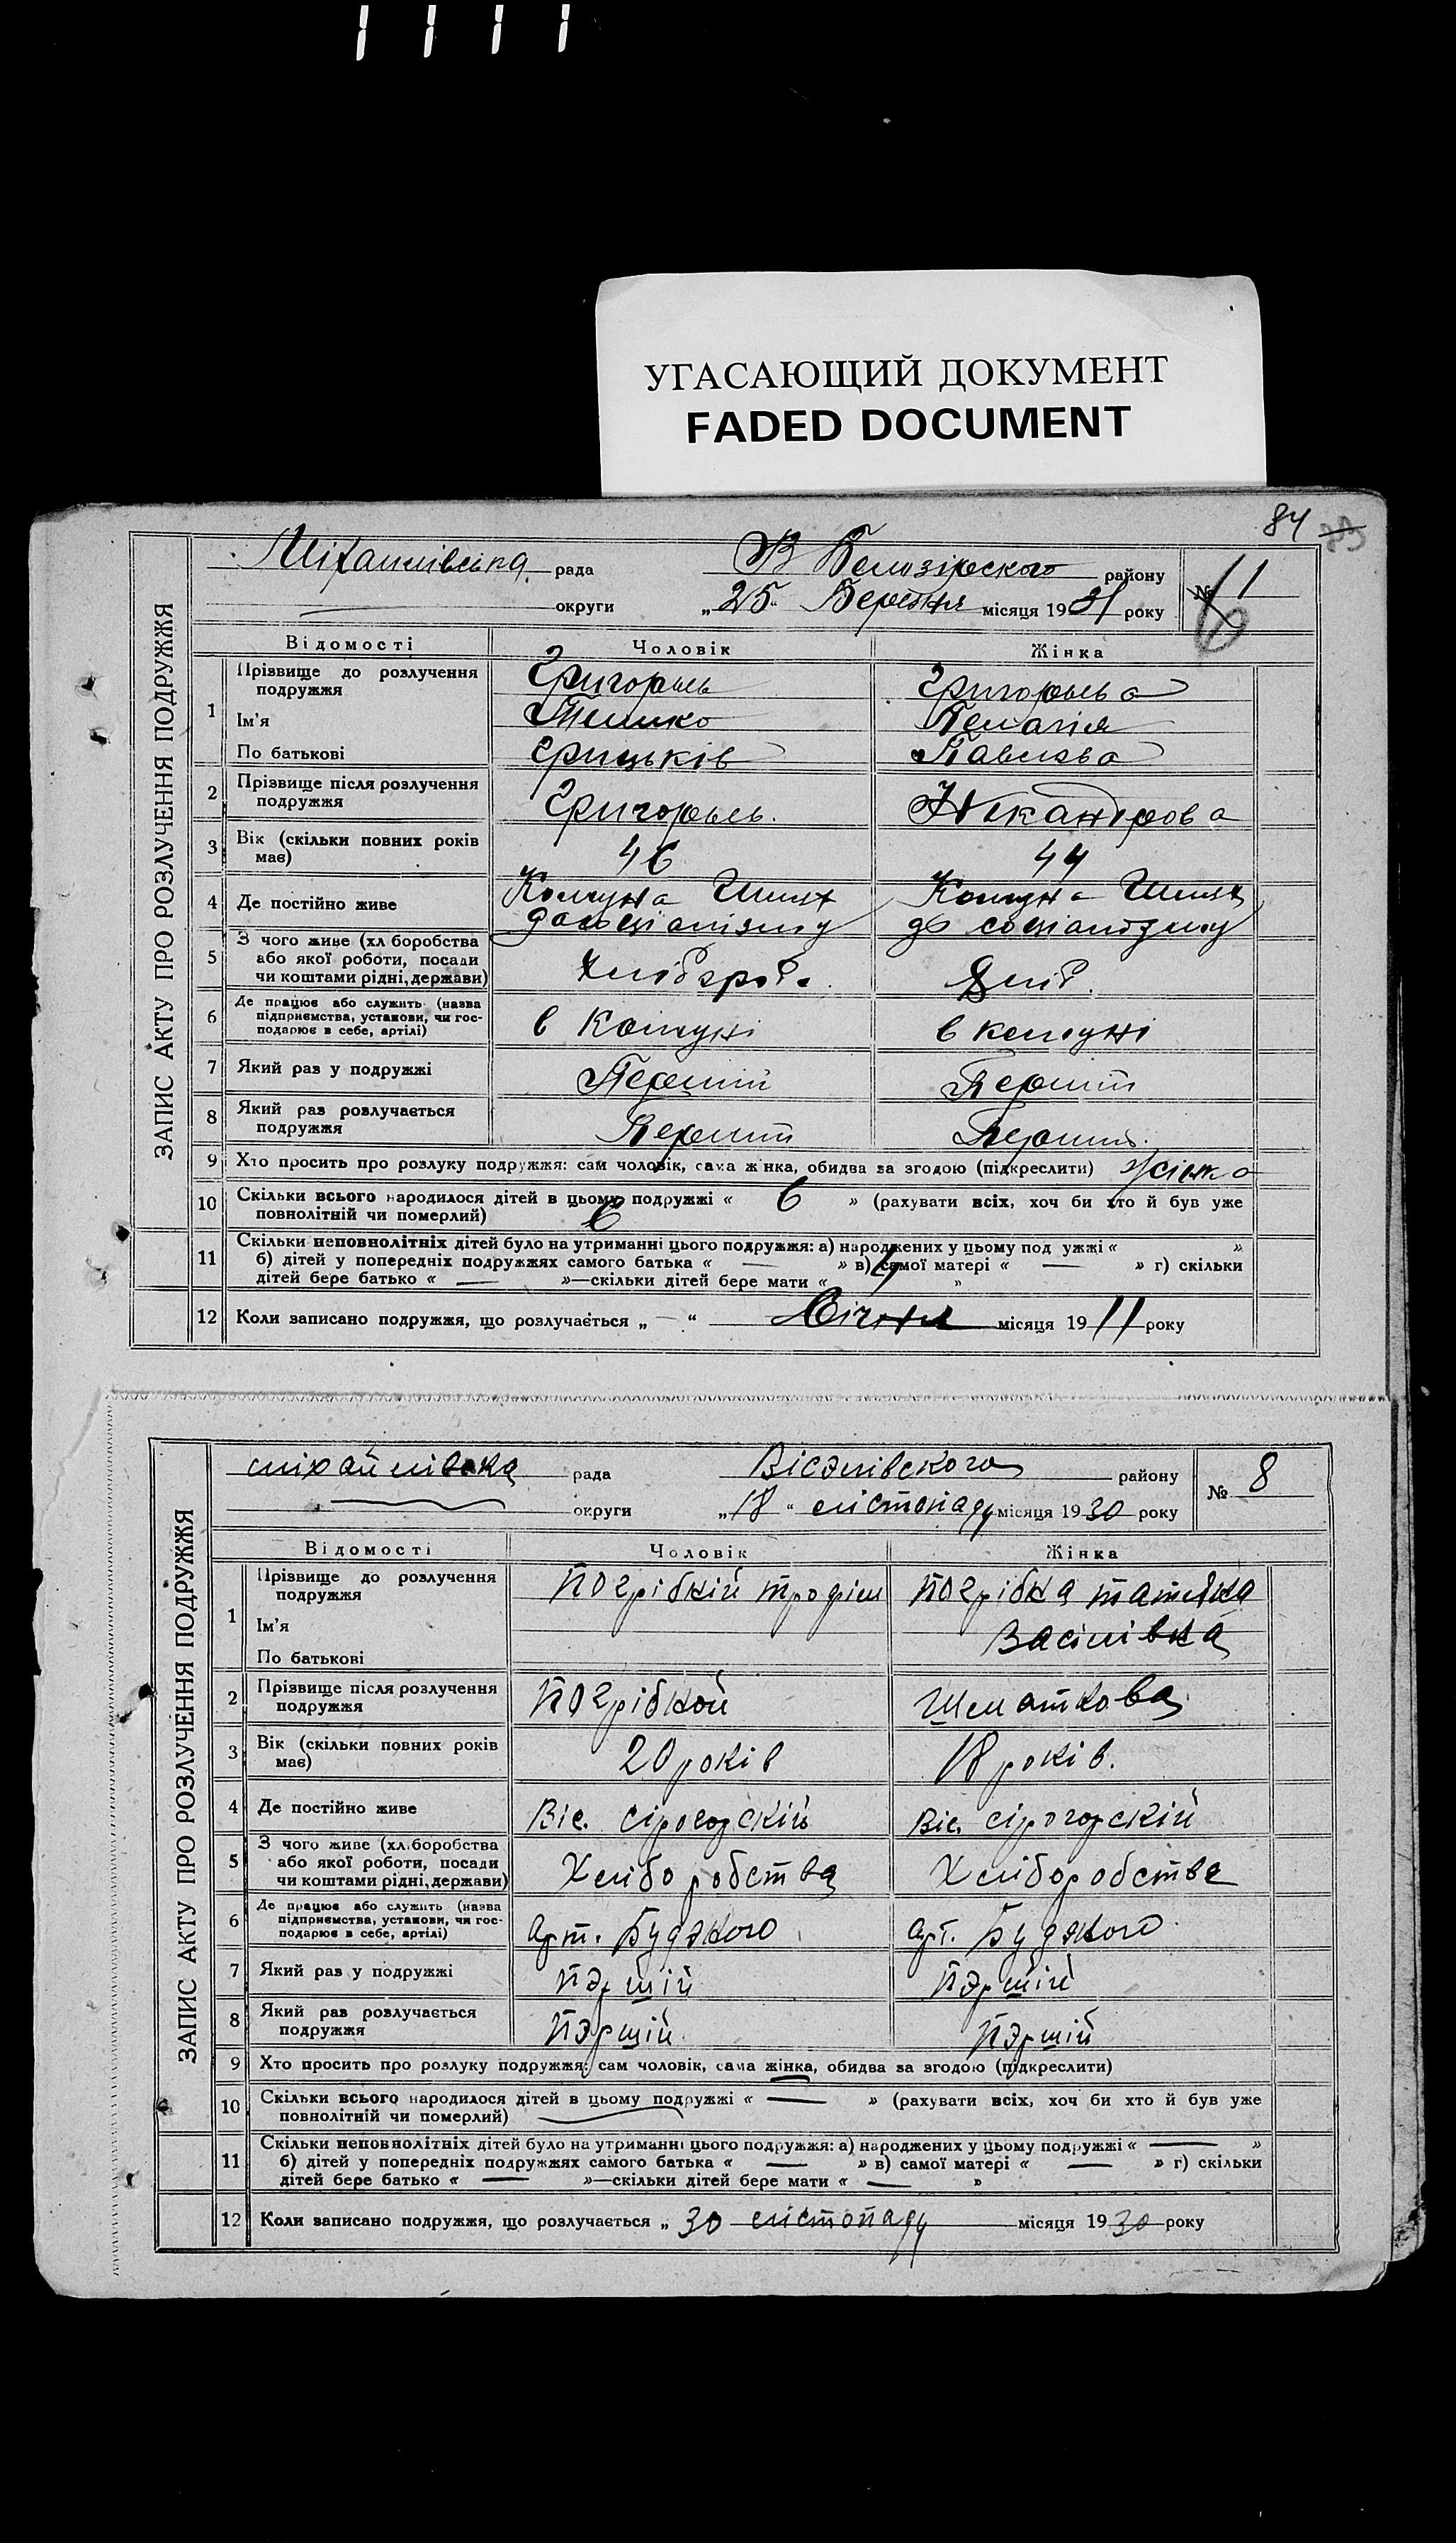 УГАСАЮЩИЙ ДОКУМЕНТ
FADED DOCUMENT
84
ЗАПИС АКТУ ПРО РОЗЛУЧЕННЯ ПОДРУЖЖЯ
Міхаилівська рада В Белозірского району
№ 11
округи „25“ Березня місяця 1931 року
Відомості Чоловік Жінка
1 Прізвище до розлучення подружжя Григорьєв Григорьєва
Ім'я Пелагія
По батькові Грицьків Павлова
2 Прізвище після розлучення подружжя Григорьєв. Нікандрова
3 Вік (скільки повних років має) 46 44
4 Де постійно живе Комуна Шлях до соціалізму Комуна Шлях до соціалізму
5 З чого живе (хл боробства або якої роботи, посади чи коштами рідні, держави)
6 Де працює або служить (назва підприємства, установи, чи господарює в себе, артілі) в Комуні в комуні
7 Який раз у подружжі Перший Перший
8 Який раз розлучається подружжя Перший Перший
9 Хто просить про розлуку подружжя: сам чоловік, сама жінка, обидва за згодою (підкреслити) жінка
10 Скільки всього народилося дітей в цьому подружжі « 6 » (рахувати всіх, хоч би хто й був уже
повнолітній чи померлий) 6
11 Скільки неповнолітніх дітей було на утриманні цього подружжя: а) народжених у цьому под ужжі « »
б) дітей у попередніх подружжях самого батька « — » в) самої матері « — » г) скільки
дітей бере батько « — »—скільки дітей бере мати « 4 »
12 Коли записано подружжя, що розлучається „ — “ Січня місяця 1911 року
ЗАПИС АКТУ ПРО РОЗЛУЧЕННЯ ПОДРУЖЖЯ
міхайлівска рада району
№ 8
округи „18“ лістопаду місяця 1930 року
Відомості Чоловік Жінка
1 Прізвище до розлучення подружжя Погрібкій трофім Погрібка татяна
Ім'я Васілівна
По батькові
2 Прізвище після розлучення подружжя Погрібкой Шматкова
3 Вік (скільки повних років має) 20 років 18 років.
4 Де постійно живе Віс. сірогорскій Віс. сірогорскій
5 З чого живе (хл.боробства або якої роботи, посади чи коштами рідні, держави) Хліборобства Хліборобства
6 Де працює або служить (назва підприємства, установи, чи господарює в себе, артілі) Арт. Будякого арт. Будякого
7 Який раз у подружжі пэршій пэршій
8 Який раз розлучається подружжя пэршій пэршій
9 Хто просить про розлуку подружжя: сам чоловік, сама жінка, обидва за згодою (підкреслити)
10 Скільки всього народилося дітей в цьому подружжі « — » (рахувати всіх, хоч би хто й був уже
повнолітній чи померлий)
11 Скільки неповнолітніх дітей було на утриманні цього подружжя: а) народжених у цьому подружжі « — »
б) дітей у попередніх подружжях самого батька « — » в) самої матері « — » г) скільки
дітей бере батько « — »—скільки дітей бере мати « — »
12 Коли записано подружжя, що розлучається „ 30 лістопаду місяця 1930 року